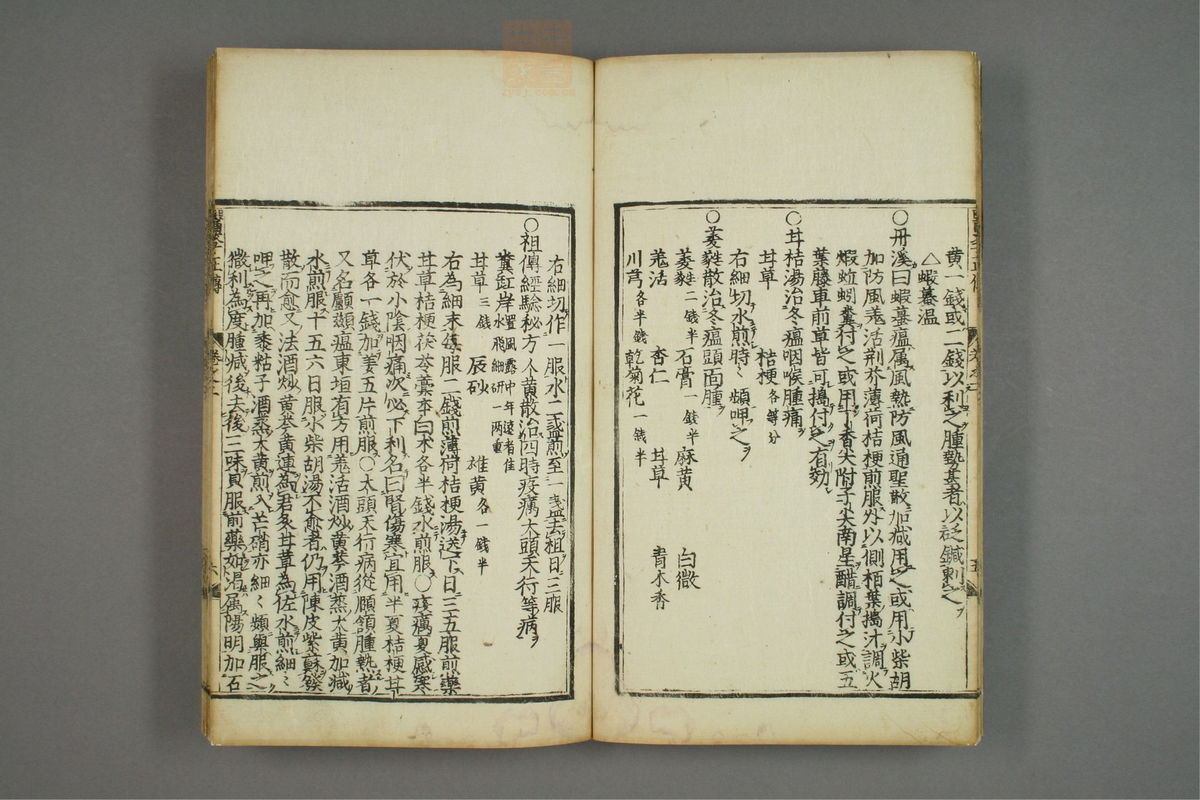 黄一錢或一二錢以利之腫𫝑甚者以砭鍼刺之
△蝦蟇温
○丹溪曰蝦蟇瘟属風熱防風通聖散加减用之或用小柴胡
加防風羌活荆芥薄荷桔梗煎服外以側栢葉搗汁調火
蝦蚯蚓糞付之或用丁香尖附子尖南星醋調付之或五
葉藤車前草皆可搗付之有効
○甘桔湯治冬瘟咽喉腫痛
甘草 桔梗各等分
右細切水煎時〻頻呷之
○葳蕤散治冬瘟頭面腫
葳蕤二錢半 石膏一錢半 麻黄 白微
羌活 杏仁 甘草 青木香
川芎各半錢 乾菊花一錢半
右細切作一服水二盞煎至一盞去柤日三服
○祖傳經驗秘方人黄散治四時疫癘大頭天行等病
糞缸岸置風露中年遠者佳水飛細研一两重
甘草三錢 辰砂 雄黄各一錢半
右為細末每服二錢煎薄荷桔梗湯送下日三五服煎藥
甘草桔梗茯苓藁本白术各半錢水煎服○疫癘夏感寒
伏於小陰咽痛次必下利名曰腎傷寒宜用半夏桔梗甘
草各一錢加姜五片煎服○大頭天行病從頥頷腫熱者
又名鸕鷀瘟東垣有方用羌活酒炒黄芩酒蒸大黄加减
水煎服十五六日服小柴胡湯不愈者仍用陳皮紫蘇發
散而愈又法酒炒黄芩黄連為君炙甘草為佐水煎細〻
呷之再加黍粘子酒蒸大黄煎入芒硝亦細〻頻與服之
微利為度腫减後去後三味只服前藥如渴属陽明加石